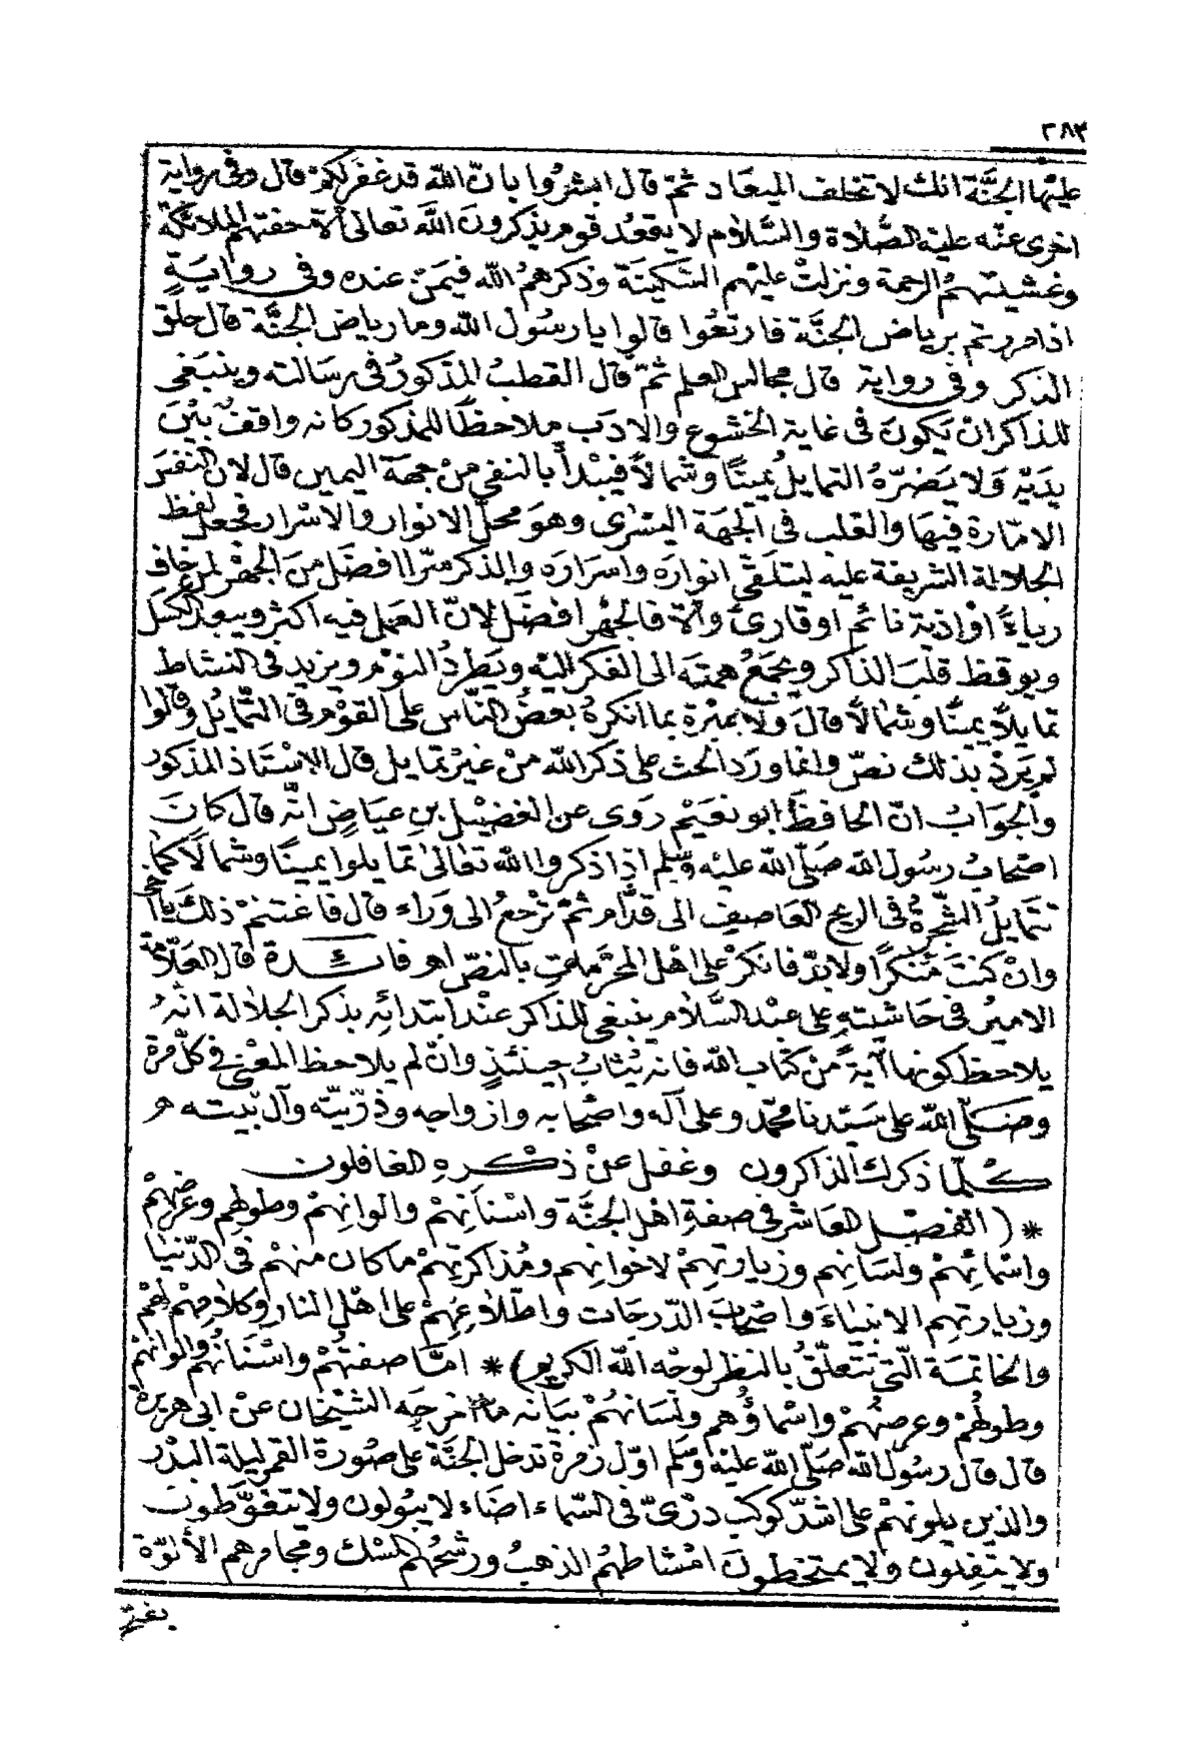 ٢٨٣
عليْها الجنَّة انك لا تخلف الميعاد ثمّ قال ابشرُوا بانّ الله قد غفرَ لكمْ قال وفى رواية
اخرى عنْه عليْه الصَّلاة والسَّلام لا يقعُد قوم يذكرونَ اللهَ تعالى الّا حفتهم الملائكة
وغشيتْهمُ الرحمة ونزلتْ عليْهم السَّكينَة وذكرهمُ الله فيمَنْ عنده وفى روايَةٍ
اذا مررتم برياض الجنَّة فارتعُوا قالوا يا رسُول الله وما رياض الجنَّة قال حلق
الذكر وفى رواية قال مجالس العلم ثمّ قال القطبُ المذكورُ فى رسَالته وينبَغى
للذاكر انْ يَكونَ فى غاية الخشوع والادَب ملاحظًا للمذكور كانه واقفٌ بيْنَ
يدَيْه وَلا يَضرّهُ التمايلُ يَمينًا وشمالاً فيبْدأ بالنفي منْ جهة اليمين قال لان النفسَ
الامّارة فيهَا والقلب فى الجهَة اليسْرى وهوَ محلّ الانوار والاسْرار فيجعل لفظ
الجلالة الشريفة عليه ليتلقى انوارَه واسرَارَه والذكر سرّا افضَل منَ الجهْر لمن خاف
رياءً اوْ اذية نائم او قارئ والّا فالجهْر افضَل لانّ العمل فيه اكثر ويبعد الكسَل
ويوقظ قلبَ الذاكر ويجمَعُ همتَه الى الفكر اليْه ويَطردُ النوْم ويزيد فى النشاط
تمايلاً يمينًا وشمالاً قالَ ولا عبْرة بما انكرهُ بعضُ النّاس على القوْم فى التمايُل وقالوا
لم يَردْ بذلك نصّ وانما ورَد الحث على ذكر الله منْ غيْر تمايل قال الاسْتاذ المذكور
والجوَابُ انّ الحافظَ ابو نعَيْم رَوى عن الفضيْل بنِ عيَاض انّه قال كانَ
اصْحابُ رسُول الله صَلّى الله عليْه وسَلم اذا ذكروا الله تعَالىٰ تمايلوا يمينًا وشمالاً كما
تتمايلُ الشّجرةُ فى الريح العَاصفِ الى قدّام ثمّ ترْجعُ الى وَراء قال فاغتنمْ ذلك يا أخى
وانْ كنتَ مُنكرًا ولا بدّ فانكرْ على اهْل المحرّمات بالنصّ اهـ فائدة قال العَلّامة
الاميرُ فى حَاشيتهِ على عبْد السَّلام ينبغى للذاكر عنْد ابتدائه بذكر الجلالة انْ
يلاحظ كونها آيَةً منْ كتاب الله فانه يُثابُ حينَئذٍ وانْ لم يلاحظ المعْنى فى كلّ مرة
وصَلّى الله على سَيّدنا محمّد وعلى آله واصْحابه وازواجه وذرّيته وآل بيته
كلّما ذكرك الذاكرون وغفل عنْ ذكرهِ الغافلون
* (الفصْل العَاشر فى صفةِ اهْل الجنَّة واسْنَانِهمْ والوانِهمْ وطولهم وعَرضهمْ
واسْمائهمْ ولسَانهم وزيارتهمْ لاخوانهم ومُذاكرتهمْ ما كان منهمْ فى الدّنيَا
وزيارتهم الانبيَاءَ واصْحابَ الدّرجَات واطّلاعهمْ على اهْل النار وكلامهمْ لهمْ
والخاتمَة الّتى تتعلّقُ بالنظر لوجْه الله الكريم) * امّا صفتُهمْ واسْنَانُهمْ والوانُهمْ
وطولهمْ وعرضهُمْ واسْماؤهم ولسَانهُمْ بيَانه ما اخرجَه الشيْخان عنْ ابى هرَيرة
قال قال رسُول الله صَلّى الله عليْه وسَلم اوّل زمرة تدخل الجنَّة على صُورة القمر ليلة البدْر
والذين يلونهمْ على اشدّ كوكب درّىّ فى السّماء اضَاءة لا يبُولون ولا يتغوّطونَ
ولا يتفِلون ولا يمتخطونَ امْشاطهمُ الذهبُ ورشحُهمُ المسْك ومجامرهم الألوّة